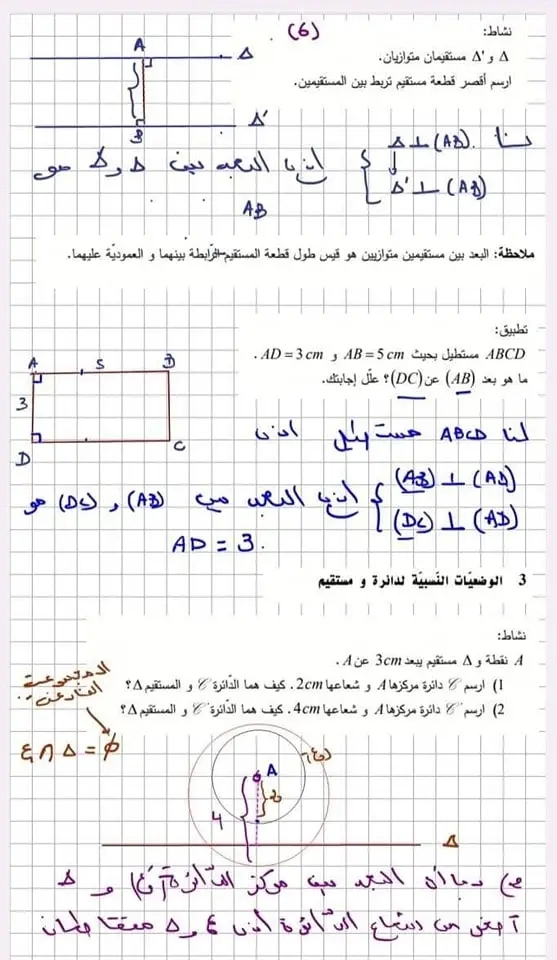 (6)
نشاط:
Δ و 'Δ مستقيمان متوازيان.
ارسم أقصر قطعة مستقيم تربط بين المستقيمين.
A
Δ
B
Δ'
لنا
Δ ⊥ (AB)
Δ' ⊥ (AB)
إذن البعد بين Δ و Δ' هو
AB
ملاحظة: البعد بين مستقيمين متوازيين هو قيس طول قطعة المستقيم الرّابطة بينهما و العموديّة عليهما.
تطبيق:
ABCD مستطيل بحيث AB = 5 cm و AD = 3 cm .
ما هو بعد (AB) عن (DC)؟ علّل إجابتك.
A 5 B
3
D C
لنا ABCD مستطيل إذن
(AB) ⊥ (AD)
(DC) ⊥ (AD)
إذن البعد بين (AB) و (DC) هو
AD = 3.
3 الوضعيّات النّسبيّة لدائرة و مستقيم
نشاط:
A نقطة و Δ مستقيم يبعد 3cm عن A.
1) ارسم 𝒞 دائرة مركزها A و شعاعها 2cm. كيف هما الدّائرة 𝒞 و المستقيم Δ؟
2) ارسم '𝒞 دائرة مركزها A و شعاعها 4cm. كيف هما الدّائرة '𝒞 و المستقيم Δ؟
المجموعة
الفارغة
𝒞 ∩ Δ = ϕ
A
2
4
Δ
2) بما أن البعد بين مركز الدّائرة و Δ
أصغر من شعاع الدّائرة إذن و Δ متقاطعان